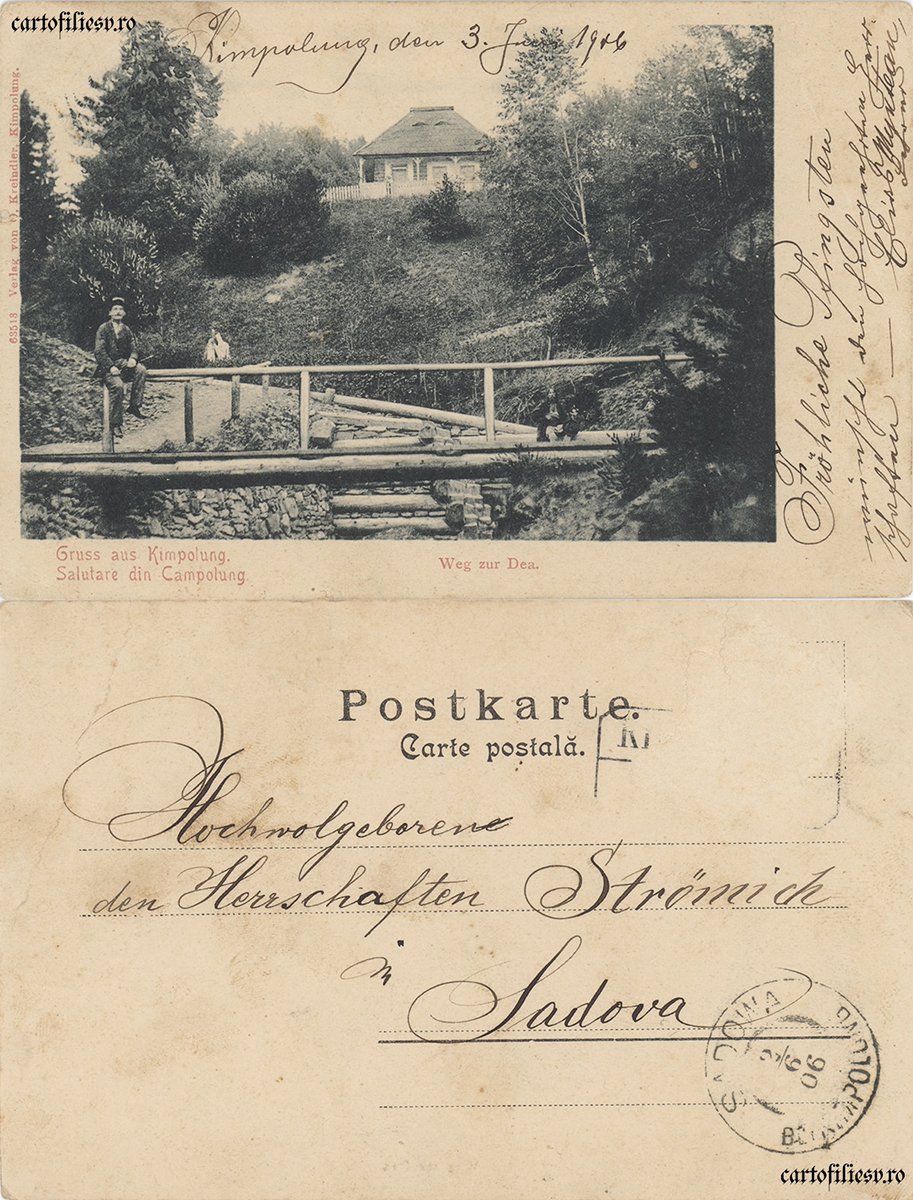 cartofiliesv.ro
Kimpolung, den 3. Juni 1906
63513 Verlag von O. Kreindler, Kimpolung.
Fröhliche Pfingsten
wünscht den hochgeehrten Herr-
schaften —
Gruss aus Kimpolung.
Salutare din Campolung.
Weg zur Dea.
Postkarte.
Carte postală.
KI
Hochwolgeborene
den Herrschaften Strömich
in
Sadova
SADOWA
3/6
06
cartofiliesv.ro